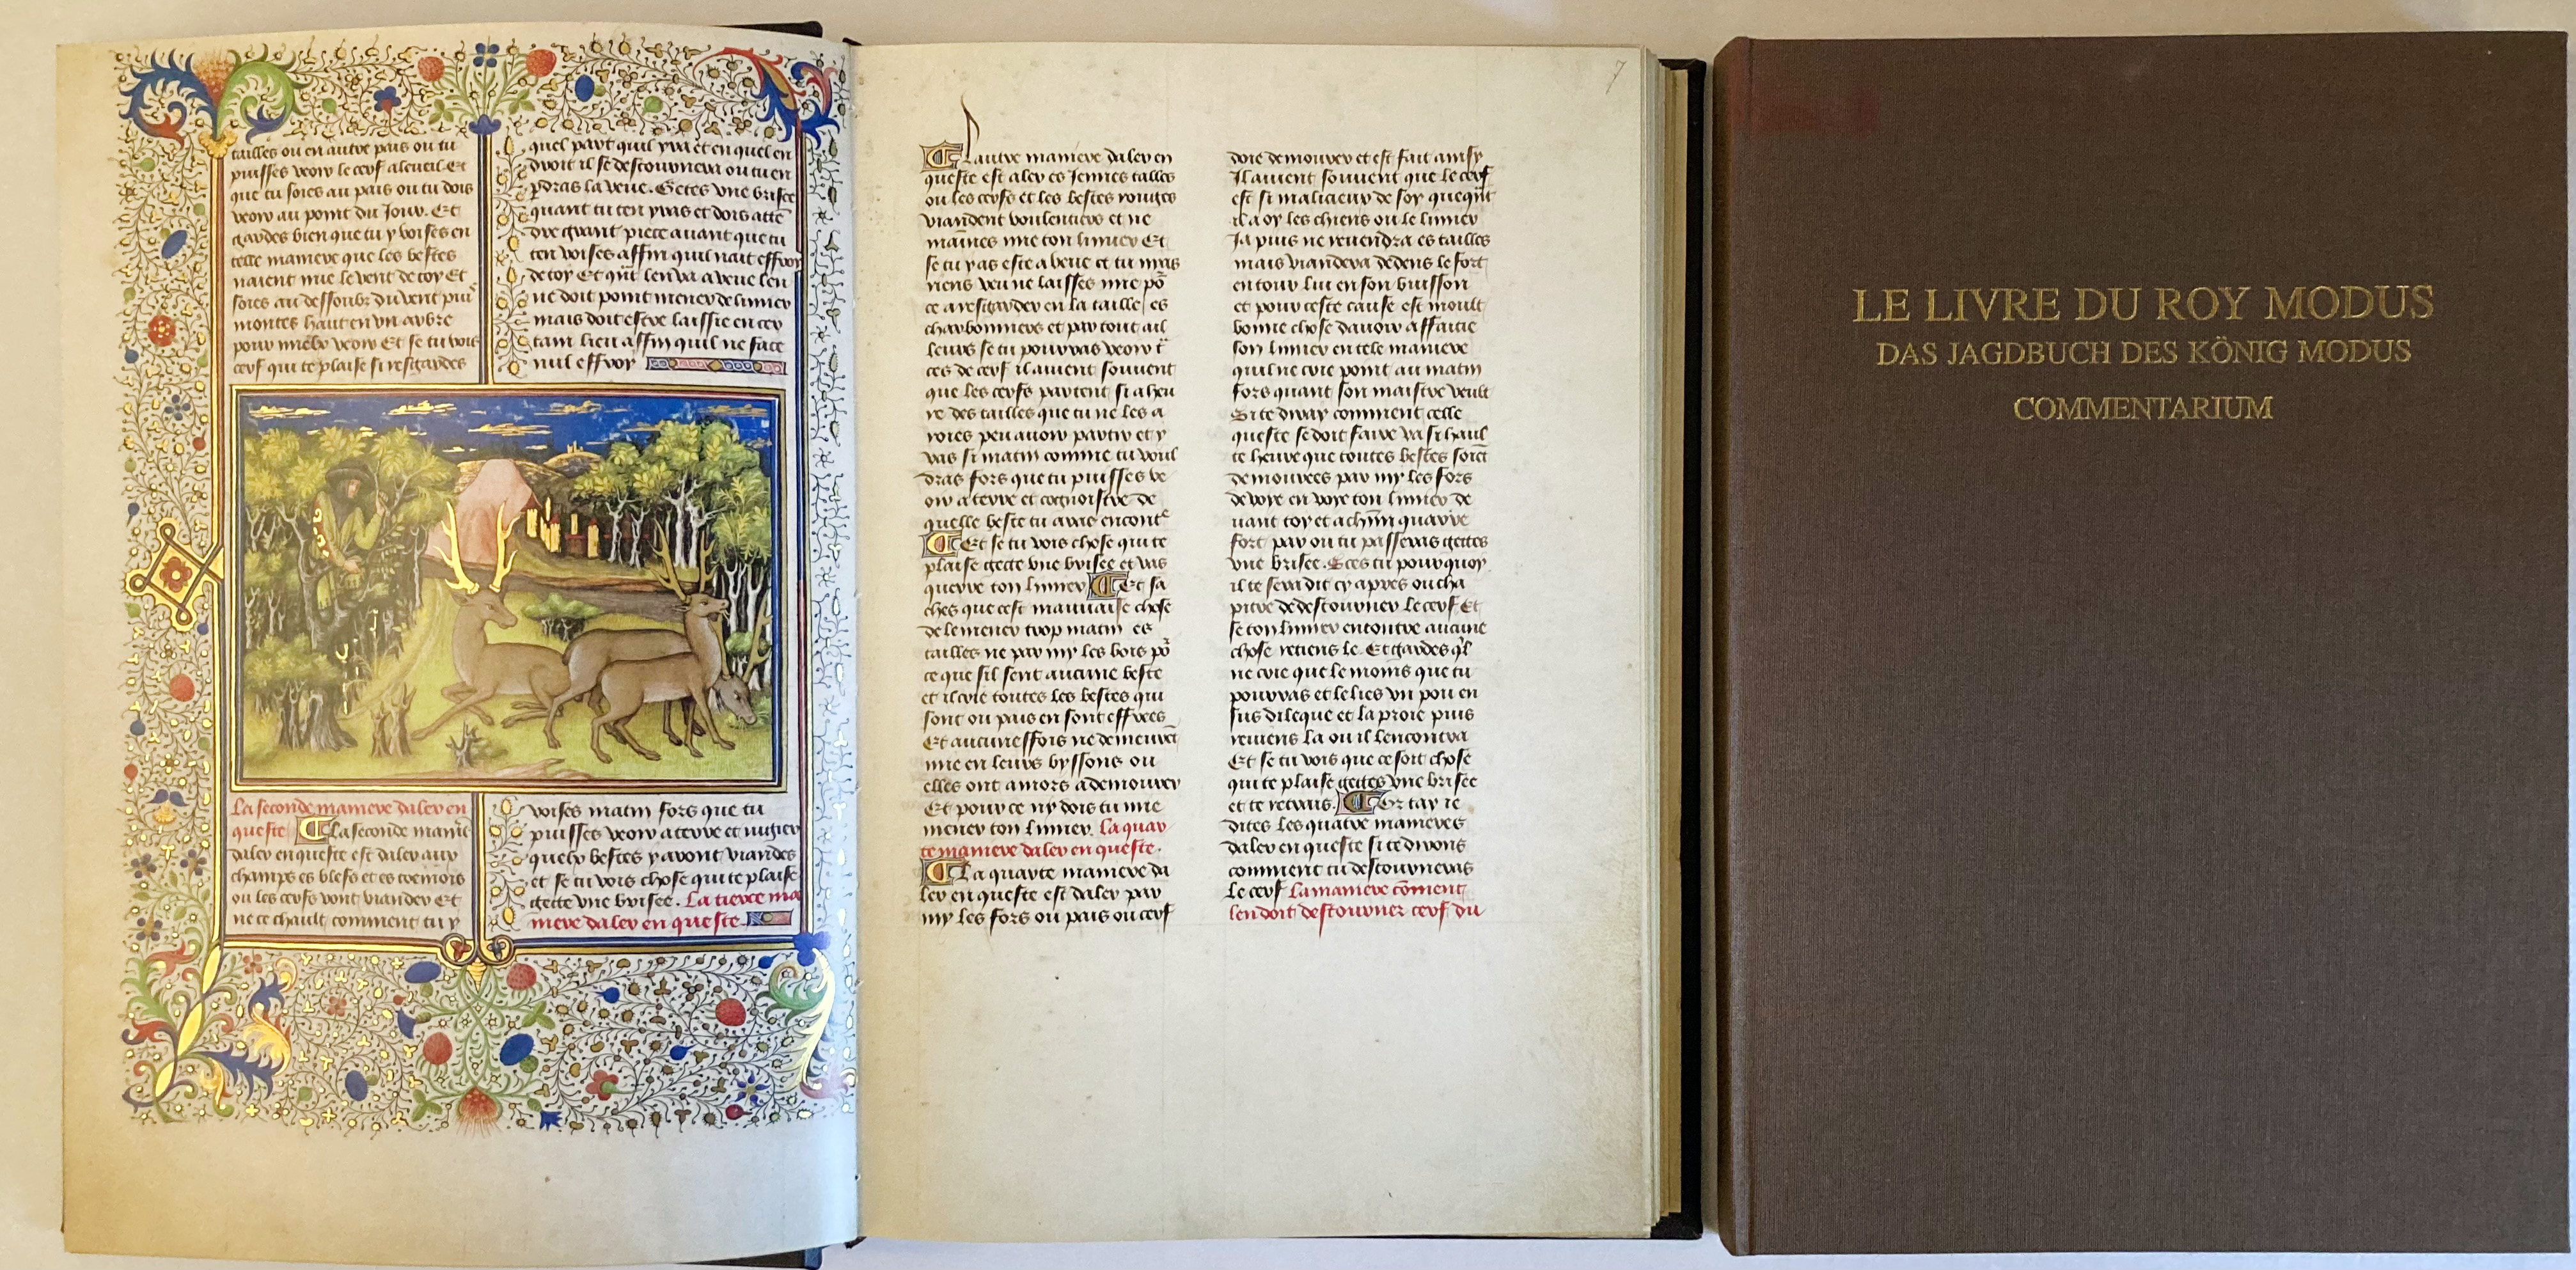 tailles ou en autre pais ou tu
puisses veoir le cerf a lcueil. Et
que tu soies au pais ou tu dois
veoir au point du Jour. Et
gardes bien que tu y voises en
telle maniere que les bestes
naient mie le vent de toy Et
soies au dessoubz du vent puis
montes hault en vn arbre
pour mielx veoir Et se tu vois
cerf qui te plaise si resgardes
quel part quil yra et en quel en
droit il se destournera ou tu en
pdras la veue. Getes vne brisee
quant tu ten yras et dois atte
dre grant piece auant que tu
ten voises affin quil nait effroy
de toy Et qnt len va a veue len
ne doit point mener de limier
mais doit estre laissie en cer
tain lieu affin quil ne face
nul effroy
La seconde maniere daler en
queste La seconde manie
daler en queste est daler aux
champs es blefs et es tremois
ou les cerfs vont viander Et
ne te chault comment tu y
voises matin fors que tu
puisses veoir a terre et iugier
quelx bestes y aront viandes
et se tu vois chose qui te plaise
gecte vne brisee. La tierce ma
niere daler en queste
7
Lautre maniere daler en
queste est aler es Jennes talles
ou les cerfs et les bestes rouges
viandent voulentiers et ne
maines mie ton limier Et
se tu y as este a veue et tu nas
riens veu ne laisses mie po
ce a resgarder en la taille es
charbonniers et par tout ail
leurs se tu pourras veoir t
ces de cerf il auient souuent
que les cerfs partent si a heu
re des tailles que tu ne les a
roies peu auoir partir et y
vas si matin comme tu voul
dras fors que tu puisses ve
oir a terre et cognoistre de
quelle beste tu aras encont
Et se tu vois chose qui te
plaise gecte vne brisee et vas
querre ton limier Et sa
ches que cest mauuaise chose
de le mener trop matin es
tailles ne par my les bois po
ce que sil sent aucune beste
et il crie toutes les bestes qui
sont ou pais en sont effrees
Et aucuneffois ne demeurent
mie en leurs byssons ou
elles ont amors a demourer
Et pour ce ny dois tu mie
mener ton limier. La quar
te maniere daler en queste.
La quarte maniere da
ler en queste est daler par
my les fors ou pais ou cerf
doie demourer et est fait ainsy
Il auient souuent que le cerf
est si malicieux de soy que qnt
il a oy les chiens ou le limier
Ja puis ne reuendra es tailles
mais viandera dedens le fort
entour lui en son buisson
et pour ceste cause est moult
bonne chose dauoir affaitie
son limier en tele maniere
quil ne crie point au matin
fors quant son maistre veult
Si te diray comment celle
queste se doit faire va si haul
te heure que toutes bestes soient
demourees par my les fors
de voye en voye ton limier de
uant toy et a chun quarre
fort par ou tu passeras gettes
vne brisee. Sces tu pourquoy
il te sera dit cy apres ou cha
pitre de destourner le cerf Et
se ton limier encontre aucune
chose retiens le. Et gardes ql
ne crie que le moins que tu
pourras et le lies vn pou en
sus dileque et la proie puis
reuiens la ou il lencontra
Et se tu vois que ce soit chose
qui te plaise gettes vne brisee
et te retrais. Or tay ie
dites les quatre manieres
daler en queste si te dirons
comment tu destourneras
le cerf La maniere coment
len doit destourner cerf du
LE LIVRE DU ROY MODUS
DAS JAGDBUCH DES KÖNIG MODUS
COMMENTARIUM